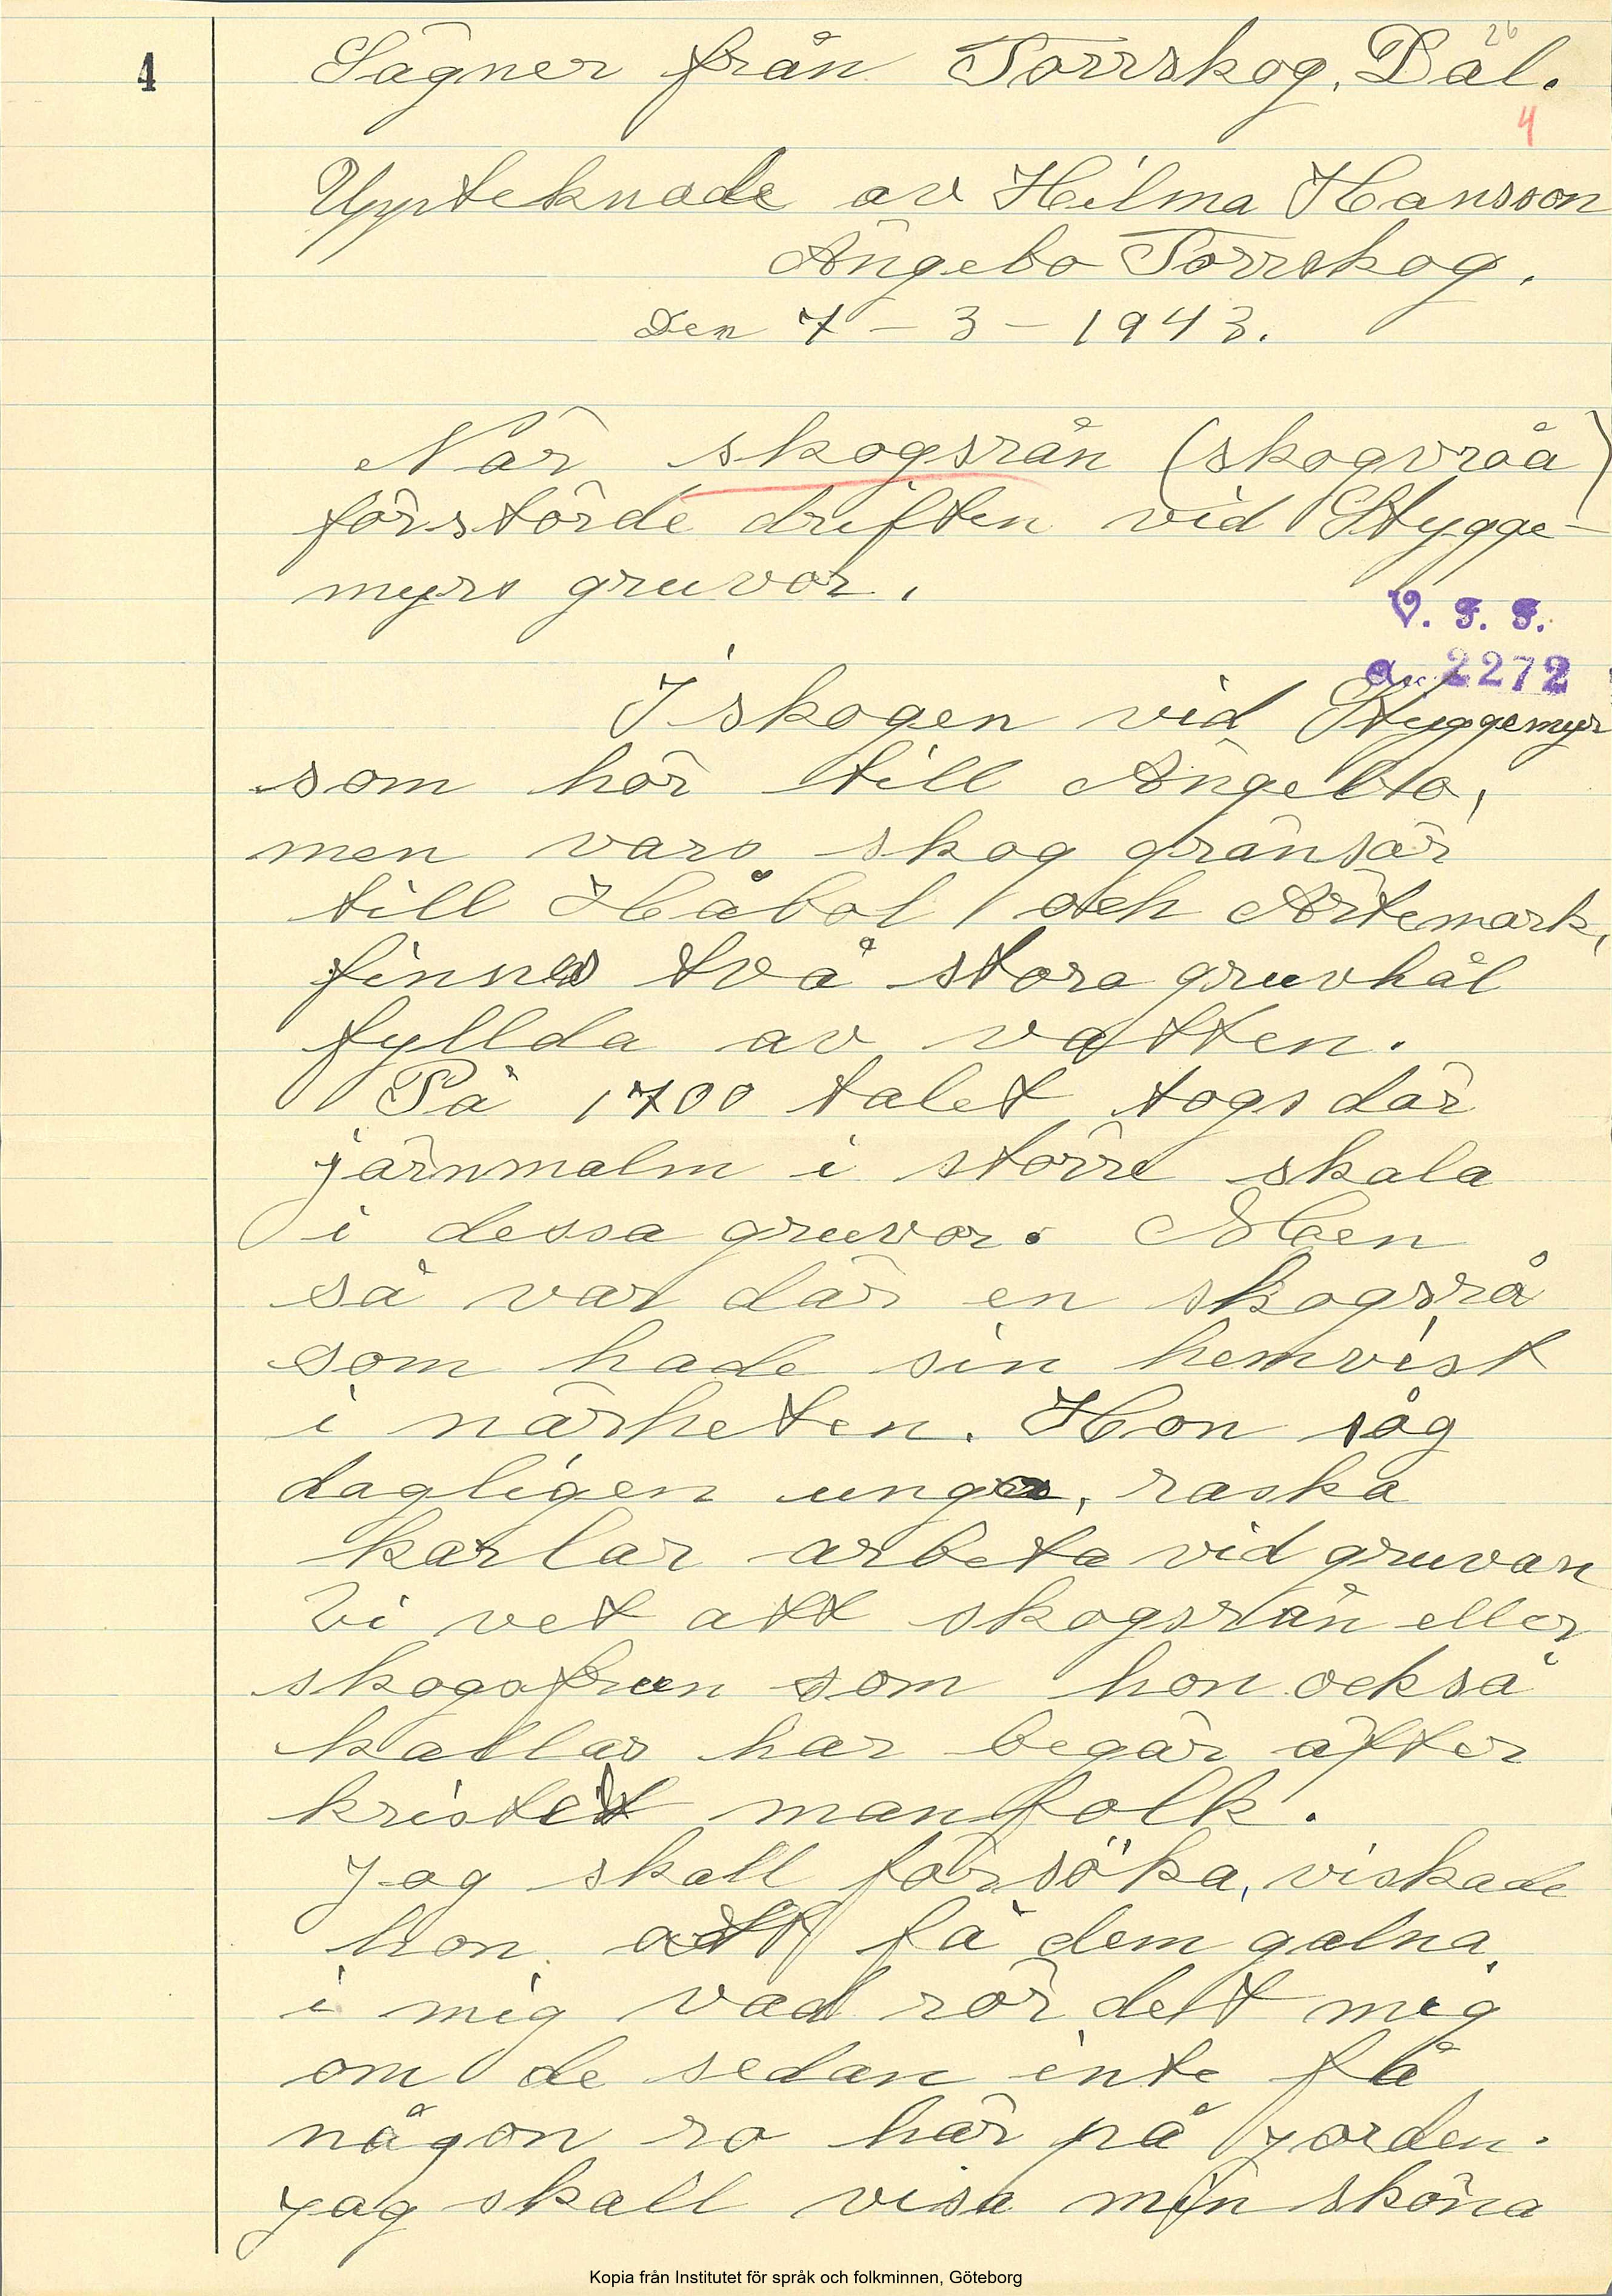 26
4
Sägner från Torrskog. Dal.
4
Uppteknade av Hilma Hansson
Ängebo Torrskog.
Den 7 - 3 - 1943.
När skogsrån (skogvråa)
förstörde driften vid Stygge-
myrs gruvor.
V. F. F.
2272
I skogen vid Styggemyr
som hör till Ängebo,
men vars skog gränsar
till Håbol och Ärtemark,
finnes två stora gruvhål
fyllda av vatten.
På 1700 talet togs där
järnmalm i större skala
i dessa gruvor. Men
så var där en skogsrå
som hade sin hemvist
i närheten. Hon såg
dagligen unga, raska
karlar arbeta vid gruvan
Vi vet att skogsrån eller
skogsfrun som hon också
kallas har begär äfter
kristet manfolk.
Jag skall försöka, viskade
hon, att få dem galna
i mig vad rör dett mig
om de sedan inte få
någon ro här på jorden.
Jag skall visa min sköna
Kopia från Institutet för språk och folkminnen, Göteborg